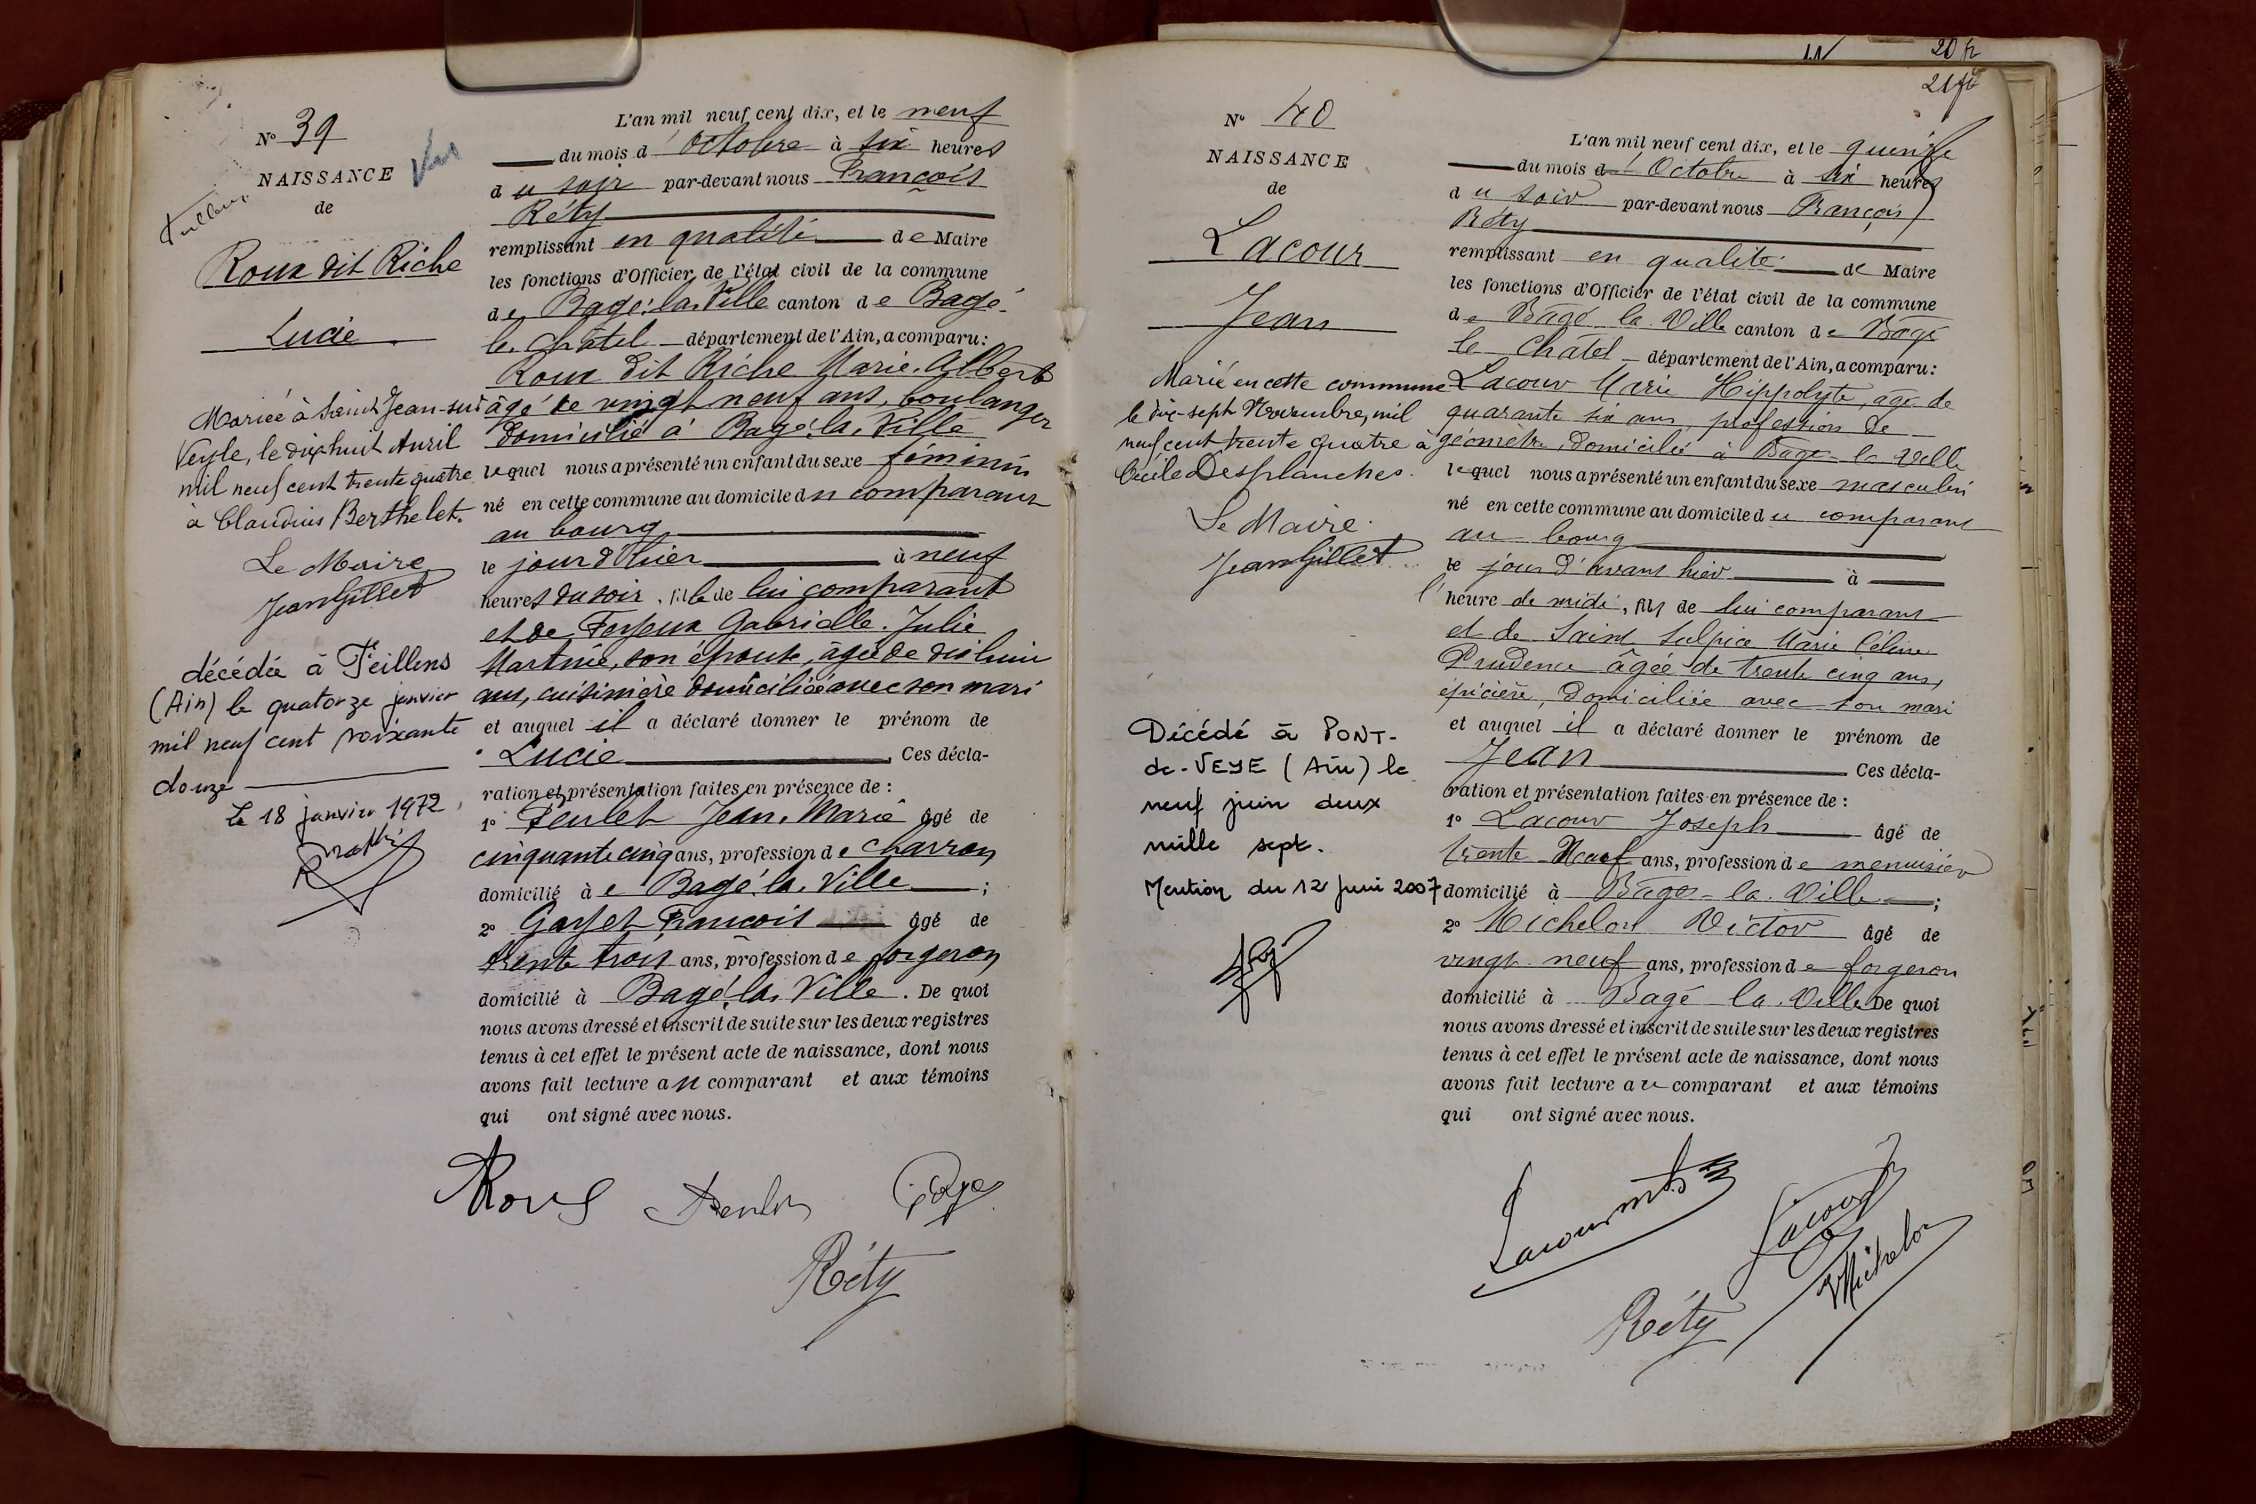 N° 39
NAISSANCE
de
Roux dit Riche
Lucie
Mariée à Saint Jean-sur
Veyle, le dix huit Avril
mil neuf cent trente quatre
à Claudius Berthelet.
Le Maire
Jean Gillet
décédée à Feillens
(Ain) le quatorze janvier
mil neuf cent soixante
douze
Le 18 janvier 1972
L'an mil neuf cent dix, et le neuf
du mois d'Octobre à six heures
du soir par-devant nous François
Réty
remplissant en qualité de Maire
les fonctions d'Officier de l'état civil de la commune
de Bagé-la-Ville canton de Bagé-
le-Châtel département de l'Ain, a comparu:
Roux dit Riche Marie-Albert
âgé de vingt neuf ans, boulanger
domicilié à Bagé-la-Ville
lequel nous a présenté un enfant du sexe féminin
né en cette commune au domicile du comparant
au bourg
le jour d'hier à neuf
heures du soir, fille de lui comparant
et de Gabrielle-Julie
Martine, son épouse, âgée de dix huit
ans, cuisinière domiciliée avec son mari
et auquel il a déclaré donner le prénom de
Lucie Ces décla-
ration et présentation faites en présence de :
1° Penlet Jean-Marie âgé de
cinquante cinq ans, profession de charron
domicilié à Bagé-la-Ville ;
2° Gayet François âgé de
trente trois ans, profession de forgeron
domicilié à Bagé-la-Ville. De quoi
nous avons dressé et inscrit de suite sur les deux registres
tenus à cet effet le présent acte de naissance, dont nous
avons fait lecture au comparant et aux témoins
qui ont signé avec nous.
Roux Penlet Gayet
Réty
20 fr
21 fr
N° 40
NAISSANCE
de
Lacour
Jean
Marié en cette commune
le dix-sept Novembre, mil
neuf cent trente quatre à
Cécile Desplanches.
Le Maire
Jean Gillet
Décédé à PONT-
de-VEYE (Ain) le
neuf juin deux
mille sept.
Mention du 12 juin 2007
L'an mil neuf cent dix, et le quinze
du mois d'Octobre à six heures
du soir par-devant nous François
Réty
remplissant en qualité de Maire
les fonctions d'Officier de l'état civil de la commune
de Bagé la Ville canton de Bagé
le Châtel département de l'Ain, a comparu:
Lacour Marie Hippolyte, âgé de
quarante six ans, profession de
géomètre, domicilié à Bagé-la-Ville
lequel nous a présenté un enfant du sexe masculin
né en cette commune au domicile du comparant
au bourg
le jour d'avant hier à
l'heure de midi, fils de lui comparant
et de Saint Sulpice Marie Céline
Prudence âgée de trente cinq ans,
épicière, domiciliée avec son mari
et auquel il a déclaré donner le prénom de
Jean Ces décla-
ration et présentation faites en présence de :
1° Lacour Joseph âgé de
trente Neuf ans, profession de menuisier
domicilié à Bagé-la-Ville ;
2° Michelon Victor âgé de
vingt neuf ans, profession de forgeron
domicilié à Bagé la Ville De quoi
nous avons dressé et inscrit de suite sur les deux registres
tenus à cet effet le présent acte de naissance, dont nous
avons fait lecture au comparant et aux témoins
qui ont signé avec nous.
Lacour Lacour
Réty Michelon